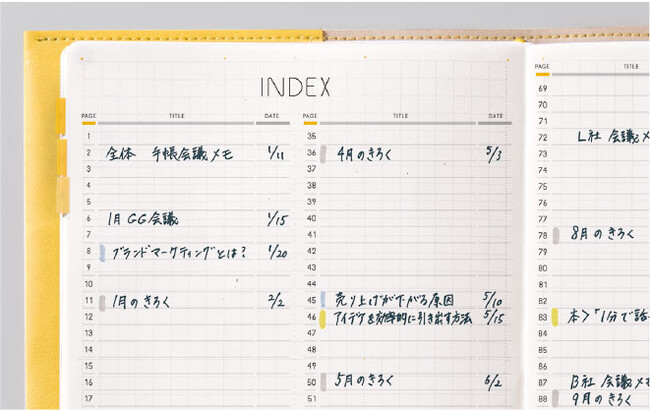 INDEX
PAGE TITLE DATE
1
2 全体 手帳会議メモ 1/11
3
4
5
6 1月 GG会議 1/15
7
8 ブランドマーケティングとは? 1/20
9
10
11 1月のきろく 2/2
12
13
14
15
16
17
PAGE TITLE DATE
35
36 4月のきろく 5/3
37
38
39
40
41
42
43
44
45 売り上げが下がる原因 5/10
46 アイデアを効率的に引き出す方法 5/15
47
48
49
50 5月のきろく 6/2
51
PAGE TITLE
69
70
71
72 L社 会議メ
73
74
75
76
77
78 8月のきろく
79
80
81
82
83 本>「1分で話
84
85
86
87 B社 会議メモ
88 9月のきろく